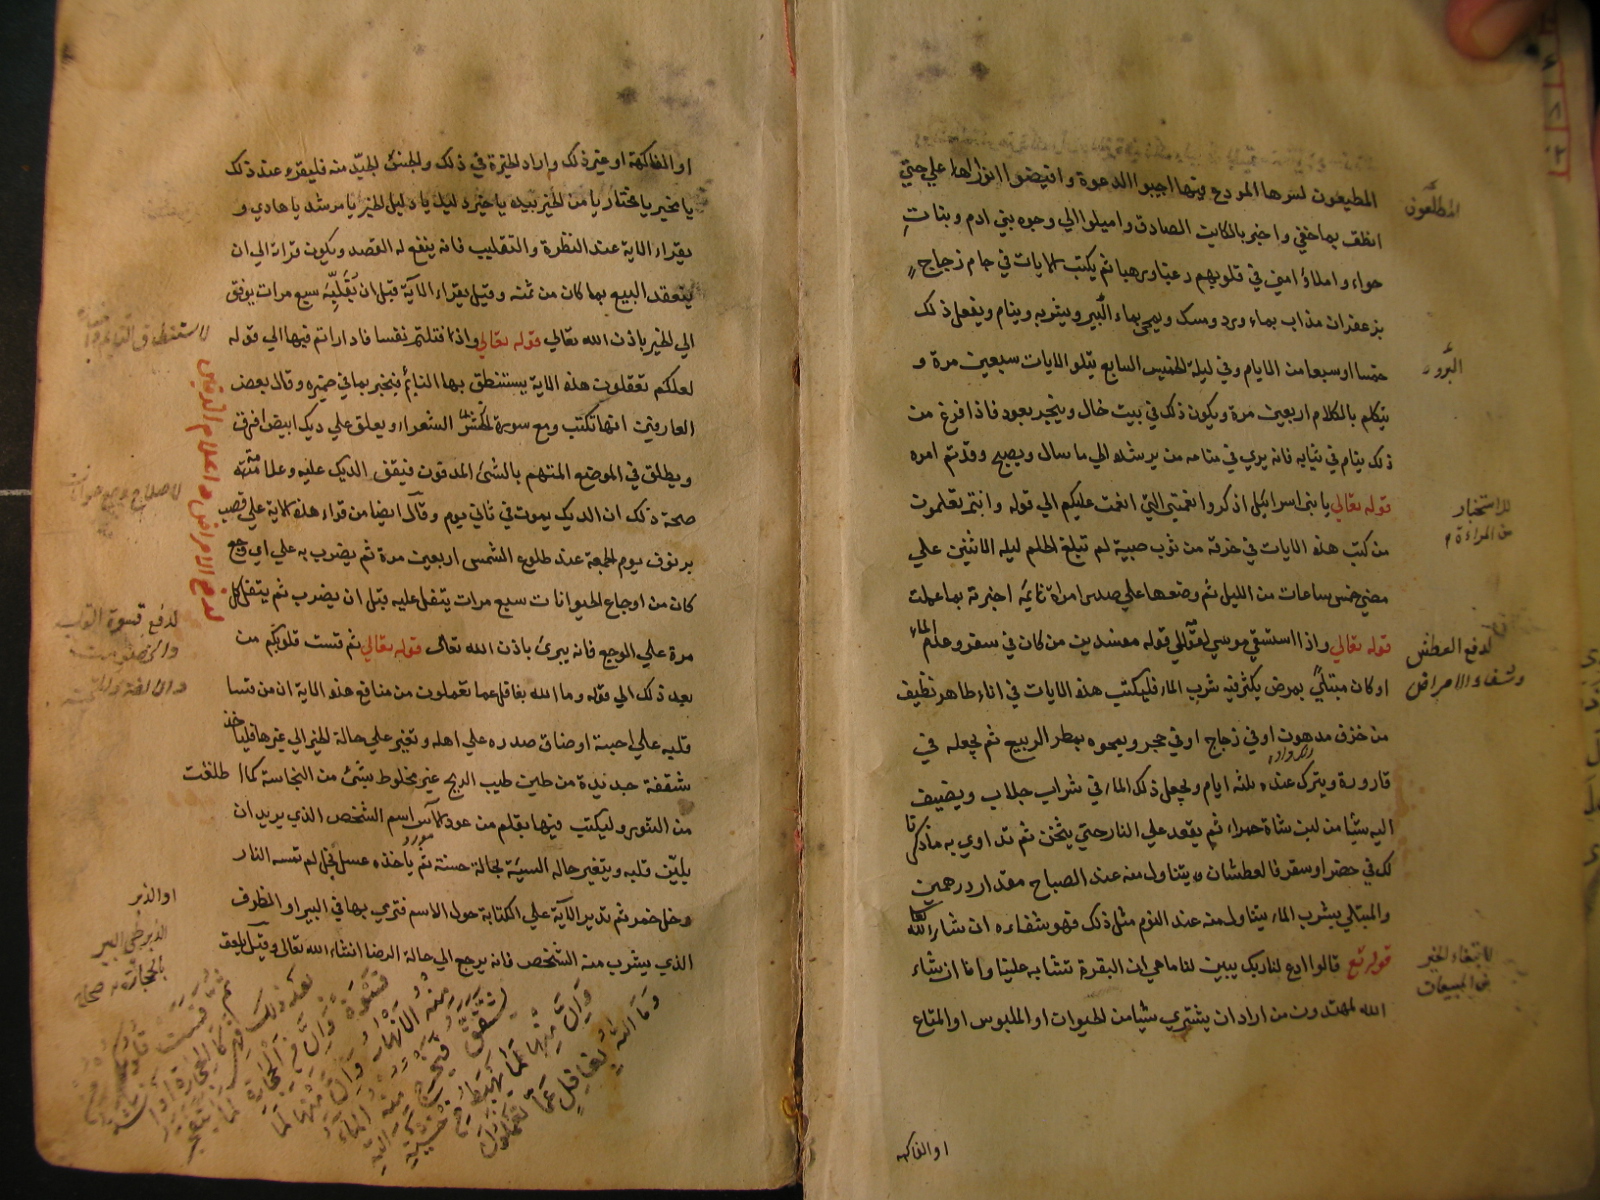 المطيعون لسرها المودع فيها اجيبوا الدعوة وافيضوا انوارها علي حتي
المطلعون
انطق بما خفي واخبر بالكاين الصادق واميلوا الي وجوه بني ادم وبنات
حواء واملاؤا مني في قلوبهم رعبا ورهبا ثم يكتب الايات في جام زجاج
بزعفران مذاب بماء ورد ومسك ويمحي بماء البير ويشربه وينام ويفعل ذلك
خمسا اوسبعا من الايام وفي ليلة الخميس السابع يتلو الايات سبعين مرة و
يتكلم بالكلام اربعين مرة ويكون ذلك في بيت خال ويتبخر بعود فاذا فرغ من
ذلك ينام في ثيابه فانه يري في منامه من يرشده الي ما سال ويصبح وقد تم امره
قوله تعالي يا بني اسرائيل اذكروا نعمتي التي انعمت عليكم الي قوله وانتم تعلمون
للاستخبار
من المراءة
من كتب هذه الايات في خرقة من ثوب صبية لم تبلغ الحلم ليلة الاثنين علي
مضي خمس ساعات من الليل ثم وضعها علي صدر امراة نايمة اخبرته بما عملت
قوله تعالي واذا استسقي موسي لقومه الي قوله مفسدين من كان في سفر وعدم الماء
لدفع العطش
وشفاء الامراض
او كان مبتلي بمرض يكثر فيه شرب الماء فليكتب هذه الايات في اناء طاهر نظيف
من خزف مدهون اوفي زجاج اوفي حجر ويمحوه بمطر الربيع ثم يجعله في
قارورة ويترك عنده ثلثة ايام ويجعل ذلك الماء في شراب جلاب ويضيف
اليه شيئا من لبن شاة حمراء ثم يقعد علي النار حتي يثخن ثم تداوي به ما ذكرنا
لك في حضر او سفر فالعطشان يتناول منه عند الصباح مقدار درهمين
والمبتلي بشرب الماء يتناول منه عند النوم مثل ذلك فهو شفاءه ان شاء الله
قوله تع قالوا ادع لنا ربك يبين لنا ما هي ان البقرة تشابه علينا وانا ان شاء
الله لمهتدون من اراد ان يشتري شيئا من الحيوان او الملبوس او المتاع
او الفاكهة
او الفاكهة او غير ذلك واراد الخيرة في ذلك والجنس الجيد منه فليقرء عند ذلك
يا مخير يا مختار يا من الخير بيده يا خير دليل يا دليل الخير يا مرشد يا هادي و
يقراء الاية عند النظرة والتقليب فانه ينفع له القصد ويكون قراته الي ان
ينعقد البيع بما كان من ثمنه وقيل يقراء الآية قبل ان تقلبه سبع مرات يوفق
الي الخير باذن الله تعالي قوله تعالي واذ قتلتم نفسا فادارأتم فيها الي قوله
لعلكم تعقلون هذه الاية يستنطق بها النائم فيخبر بما في ضميره وقال بعض
العارفين انها تكتب ومع سورة الشعراء ويعلق علي ديك ابيض افرق
ويطلق في الموضع المتهم بالشئ المدفون فيقف الديك عليه وعلامة
صحة ذلك ان الديك يموت في ثاني يوم وقال ايضا من قراء هذه الاية علي قصب
برنوف يوم الجمعة عند طلوع الشمس اربعين مرة ثم يضرب به علي اي وجع
كان من اوجاع الحيوانات سبع مرات يتفل عليه قبل ان يضرب ثم يتفل كل
لدفع الامراض
مرة علي الوجع فانه يبرئ باذن الله تعالى قوله تعالي ثم قست قلوبكم من
لدفع قسوة القلب
بعد ذلك الي قوله وما الله بغافل عما تعملون من منافع هذه الاية ان من قسا
قلبه علي احبته اوضاق صدره علي اهله وتغير علي حالة الخير الي غيرها فلياخذ
شقفة جديدة من طين طيب الريح غير مخلوط بشئ من النجاسة كما طلعت
من التنور وليكتب فيها بقلم من عود الآس اسم الشخص الذي يريد ان
يلين قلبه ويتغير حاله السيئة بحالة حسنة ثم ياخذه عسل نحل لم تمسه النار
وخل خمر ثم تدير الآية علي الكتابة حول الاسم فترمي بها في البير او الظرف
الذي يشرب منه الشخص فانه يرجع الي حالة الرضا انشاء الله تعالى وقيل
ثم قست قلوبكم من
بعد ذلك فهي كالحجارة او اشد
قسوة وان من الحجارة لما يتفجر
منه الانهار وان منها لما
يشقق فيخرج منه الماء
وان منها لما يهبط من خشية الله
وما الله بغافل عما تعملون